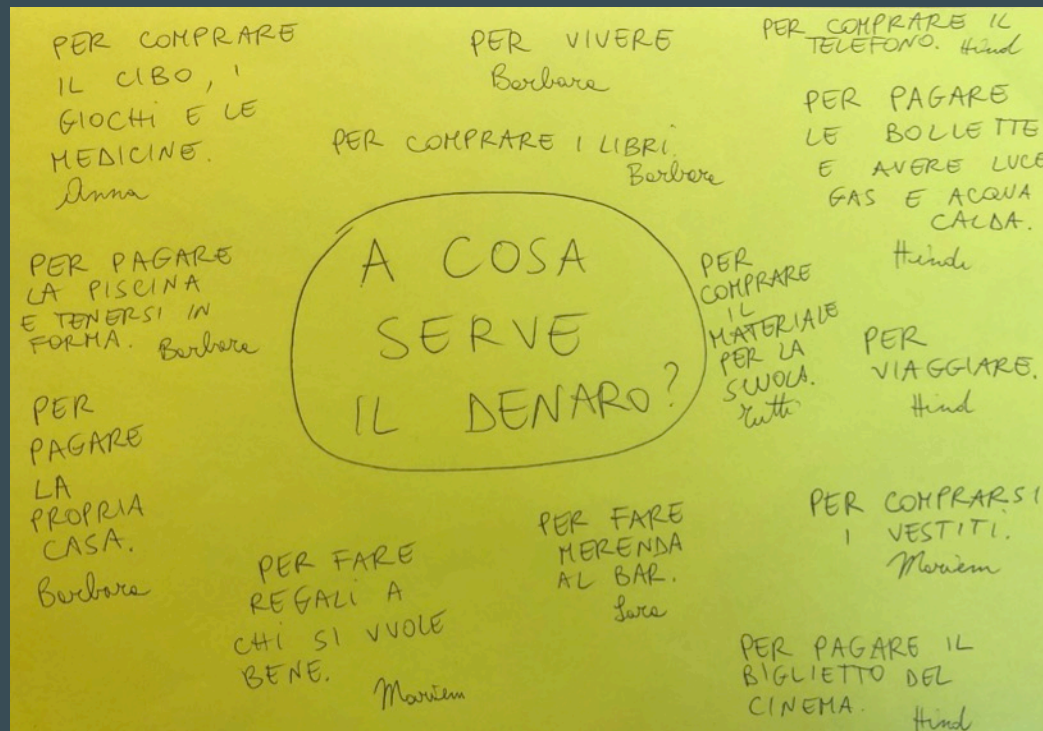 PER COMPRARE
IL CIBO, I
GIOCHI E LE
MEDICINE.
Anna
PER VIVERE
Barbara
PER COMPRARE IL
TELEFONO. Hind
PER COMPRARE I LIBRI.
Barbara
PER PAGARE
LE BOLLETTE
E AVERE LUCE
GAS E ACQUA
CALDA.
Hind
A COSA
SERVE
IL DENARO?
PER PAGARE
LA PISCINA
E TENERSI IN
FORMA. Barbara
PER
COMPRARE
IL
MATERIALE
PER LA
SCUOLA.
Tutti
PER
VIAGGIARE.
Hind
PER
PAGARE
LA
PROPRIA
CASA.
Barbara
PER FARE
REGALI A
CHI SI VUOLE
BENE.
Mariem
PER FARE
MERENDA
AL BAR.
Sara
PER COMPRARSI
I VESTITI.
Mariem
PER PAGARE IL
BIGLIETTO DEL
CINEMA.
Hind